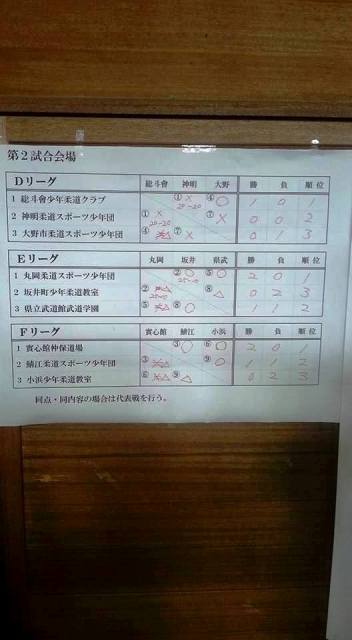 第2試合会場
Dリーグ 総斗會 神明 大野 勝 負 順位
1 総斗會少年柔道クラブ ① × 20-20 ④ ○ 1 0 1
2 神明柔道スポーツ少年団 ① × 20-20 ⑦ × 0 0 2
3 大野市柔道スポーツ少年団 ④ △ ⑦ × 0 1 3
Eリーグ 丸岡 坂井 県武 勝 負 順位
1 丸岡柔道スポーツ少年団 ② ○ ⑤ ○ 2 0 1
2 坂井町少年柔道教室 ② △ ⑧ △ 0 2 3
3 県立武道館武道学園 ⑤ △ ⑧ ○ 1 1 2
Fリーグ 實心館 鯖江 小浜 勝 負 順位
1 實心館神保道場 ③ ○ ⑥ ○ 2 0 1
2 鯖江柔道スポーツ少年団 ③ △ ⑨ ○ 1 1 2
3 小浜少年柔道教室 ⑥ △ ⑨ △ 0 2 3
同点・同内容の場合は代表戦を行う。